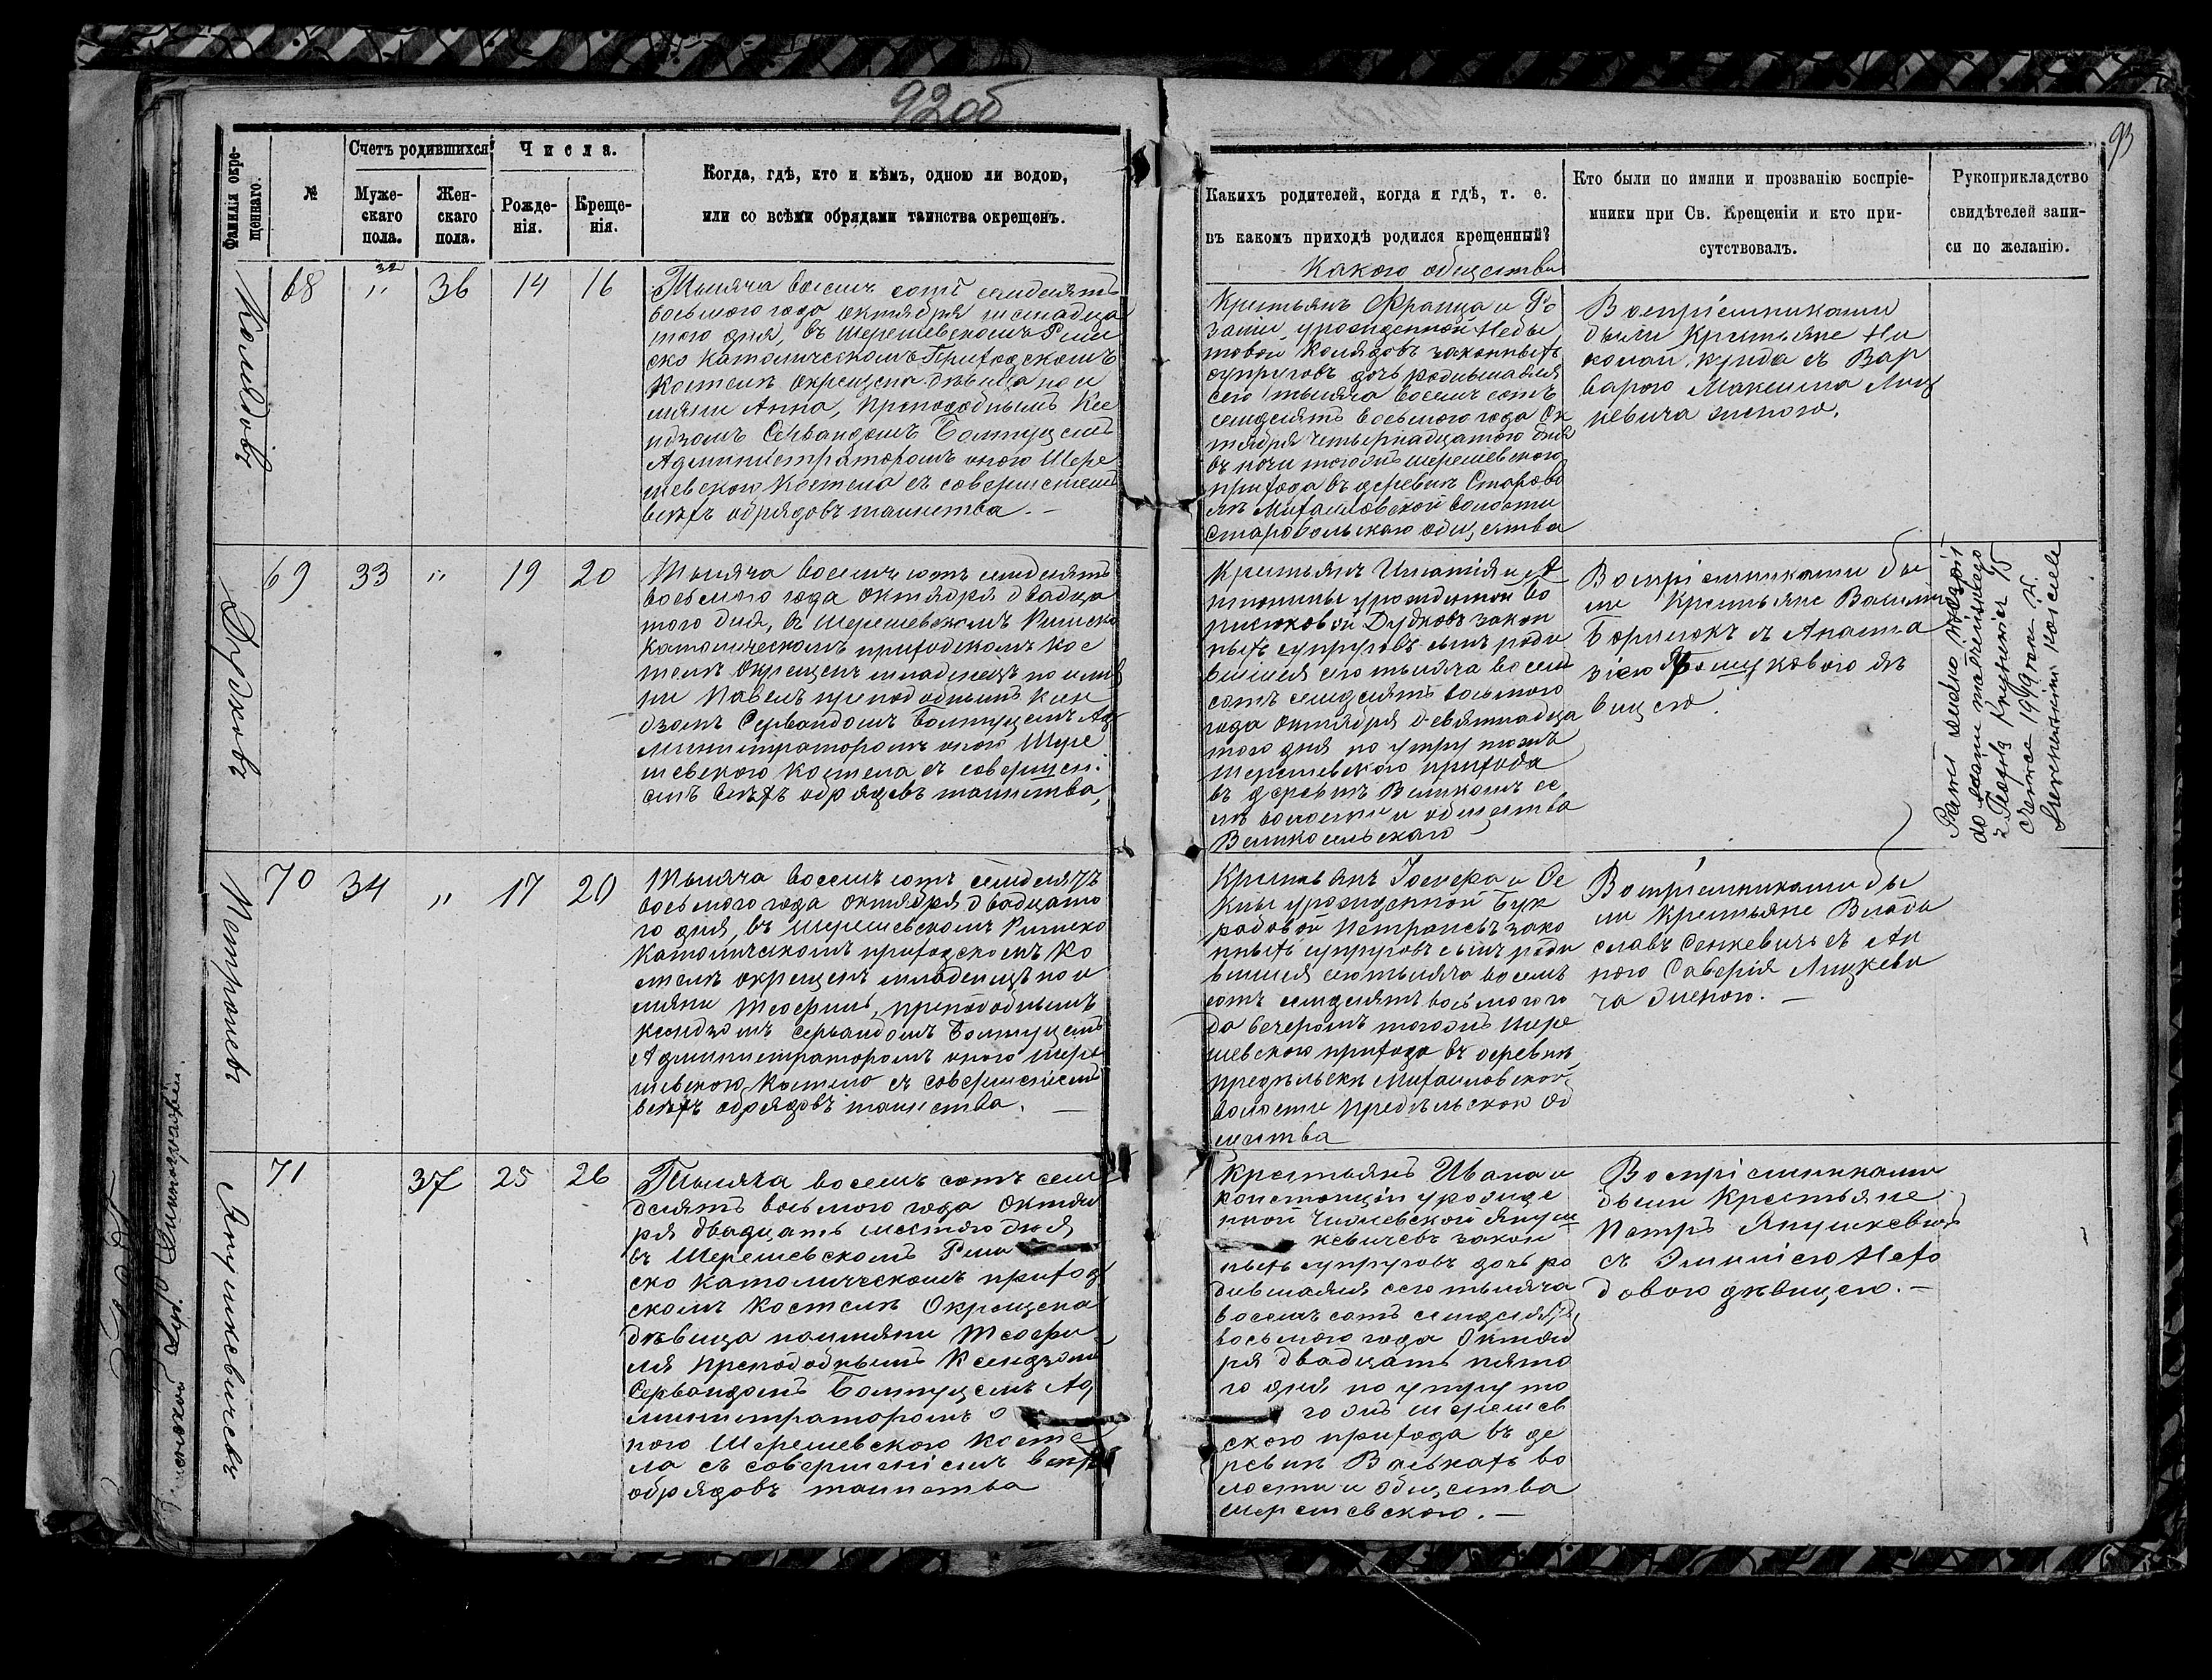 92об
93
Фамилія окре-
щеннаго.
№
Счетъ родившихся
Муже-
скаго
пола.
Жен-
скаго
пола.
Числа.
Рожде-
нія.
Креще-
нія.
Когда, гдѣ, кто и кѣмъ, одною ли водою,
или со всѣми обрядами таинства окрещенъ.
Какихъ родителей, когда и гдѣ, т. е.
въ какомъ приходѣ родился крещенный?
Какого общества
Кто были по имяни и прозванію воспріе-
мники при Св. Крещеніи и кто при-
сутствовалъ.
Рукоприкладство
свидѣтелей запи-
си по желанію.
Колядовъ
68
32
"
36
14
16
Тысяча восемь сотъ семьдесятъ
восьмого года октября шестнадца
того дня, въ Шерешевскомъ Рим
ско Католическомъ Приходскомъ
Костелѣ окрещена дѣвица по и
мяни Анна, Преподобнымъ Ксе
ндзомъ Сервандомъ Болтуцемъ
Администраторомъ оного Шере
шевского Костела съ совершеніемъ
всѣхъ обрядовъ таинства. —
Крестьянъ Франца и Ро
заліи урожденной
Колядовъ законныхъ
супруговъ дочь родившаяся
сего тысяча восемь сотъ
семьдесятъ восьмого года Ок
тября четырнадцатого дня
въ ночи тогожъ шерешевского
прихода въ деревнѣ Старово
лѣ Михайловской волости
Старовольскаго общества
Воспріемниками
были Крестьяне Ни
колай Купда съ Вар
варою Максима Лиц
кевича женою.
Дудковъ
69
33
"
19
20
Тысяча восемь сотъ семьдесятъ
восьмого года октября двадца
того дня, въ Шерешевскомъ Римско
Католическомъ приходскомъ Кос
телѣ окрещенъ младенецъ по имя
ни Павелъ преподобнымъ ксен
дзомъ Сервандомъ Болтуцемъ Ад
министраторомъ оного Шере
шевского Костела съ совершен.
емъ всѣхъ обрядовъ таинства,
Крестьянъ Игнатія и А
нтонины урожденной Бо
рисюковой Дудковъ закон
ныхъ супруговъ сынъ роди
вшійся сего тысяча восемь
сотъ семьдесятъ восьмого
года октября девятнадца
того дня по утру тожъ
Шерешевского прихода
въ деревнѣ Великомъ се
лѣ волости и общества
Великосельскаго
Воспріемниками бы
ли Крестьяне Василій
Борисюкъ съ Анаста
зіею дѣ
вицею.
Paweł
do stanu małżeńskiego
z Teofilą 15
czerwca 1919 roku w
kościele
Петроневъ
70
34
"
17
20
Тысяча восемь сотъ семьдесятъ
восьмого года октября двадцато
го дня, въ Шерешевскомъ Римско
Католическомъ приходскомъ Ко
стелѣ окрещенъ младенецъ по и
мяни Теофилъ, преподобнымъ
ксендзомъ Сервандомъ Болтуцемъ
Администраторомъ оного Шере
шевского Костела съ совершеніемъ
всѣхъ обрядовъ таинства. —
Крестьянъ Іосифа и Те
клы урожденной Бук
радовой Петроневъ зако
нныхъ супруговъ сынъ роди
вшійся сего тысяча восемь
сотъ семьдесятъ восьмого го
да вечеромъ тогожъ Шере
шевского прихода въ деревнѣ
Предѣльскѣ Михайловской
волости Предѣльского об
щества
Воспріемниками бы
ли Крестьяне Влади
славъ Сенкевичъ съ Ан
ною Саверія Лицкеви
ча женою. —
Янушкевичевъ
71
37
25
26
Тысяча восемь сотъ семь
десятъ восьмого года Октяб
ря двадцать шестого дня
въ Шерешевскомъ Рим
ско Католическомъ приход
скомъ Костелѣ Окрещена
дѣвица по имяни Теофи
ля Преподобнымъ Ксендзомъ
Сервандомъ Болтуцемъ Ад
министраторомъ о
ного Шерешевского Косте
ла съ совершеніемъ всѣхъ
обрядовъ таинства
Крестьянъ Ивана и
Констанціи урожде
нной Януш
кевичевъ закон
ныхъ супруговъ дочь ро
дившаяся сего тысяча
восемь сотъ семьдесятъ
восьмого года Октяб
ря двадцать пято
го дня по утру то
гожъ Шерешев
ского прихода въ де
ревнѣВаськахъ во
лости и общества
Шерешевского. —
Воспріемниками
были Крестьяне
Петръ Янушкевичъ
съ Эмиліею Нехо
довою дѣвицею. —